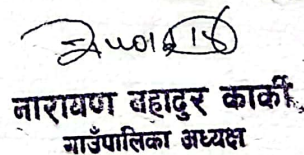 नारायण बहादुर कार्की
गाउँपालिका अध्यक्ष